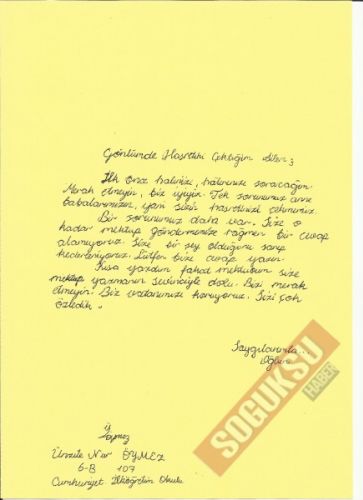 Gönlümde Hasretini Çektiğim Aileme;
İlk önce halinizi, hatırınızı soracağım.
Merak etmeyin, biz iyiyiz. Tek sorunumuz anne
babalarımızın, yani sizin hasretinizi çekmemiz.
Bir sorunumuz daha var. Size o
kadar mektup göndermemize rağmen bir cevap
alamıyoruz. Size bir şey olduğunu sanıp
kederleniyoruz. Lütfen bize cevap yazın.
Kısa yazdım fakat mektubum size
mektup yazmanın sevinciyle dolu. Bizi merak
etmeyin. Biz vatanımızı koruyoruz. Sizi çok
özledik.
Saygılarımla..
Oğlun
SOGUKSU
HABER
Ü
Soymez
Nur ÖYMEZ
6-B 107
Cumhuriyet İlköğretim Okulu